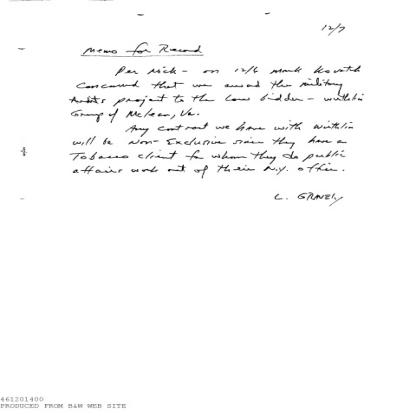 12/7
Memo for Record
Per Nick - on 12/6 Mark Kovatch
concurred that we award the military
project to the low bidder - Wirthlin
Group of McLean, Va.
Any contract we have with Wirthlin
will be non-exclusive since they have a
Tobacco client for whom they do public
affairs work out of their N.Y. office.
L. GRAVELY
461201400
PRODUCED FROM B&W WEB SITE